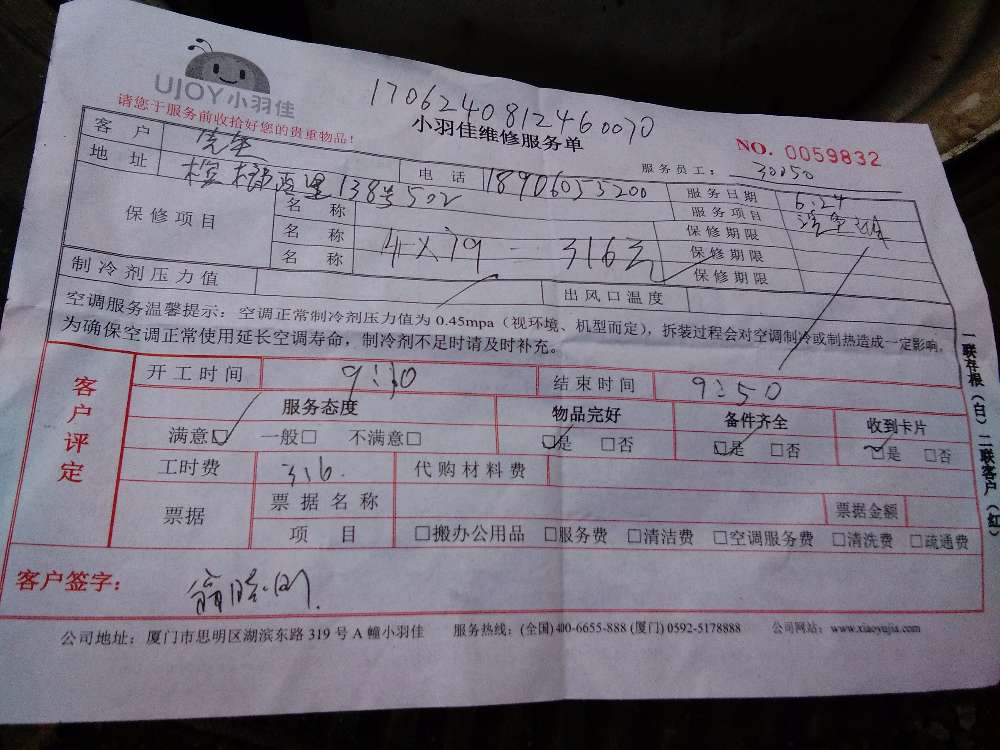 UJOY小羽佳
1706240812460070
请您于服务前收拾好您的贵重物品！
小羽佳维修服务单
NO. 0059832
客户 先生 电话 18906055200 服务员工： 30050
地址 138号502 服务日期 6.24
保修项目 名称 服务项目
名称 4×79 = 316元 保修期限
名称 保修期限
保修期限
制冷剂压力值 出风口温度
空调服务温馨提示：空调正常制冷剂压力值为0.45mpa（视环境、机型而定），拆装过程会对空调制冷或制热造成一定影响。
为确保空调正常使用延长空调寿命，制冷剂不足时请及时补充。
客户评定
开工时间 9:30 结束时间 9:50
服务态度 物品完好 备件齐全 收到卡片
满意□ 一般□ 不满意□ □是 □否 □是 □否 □是 □否
工时费 316. 代购材料费
票据 票据名称 票据金额
项目 □搬办公用品 □服务费 □清洁费 □空调服务费 □清洗费 □疏通费
客户签字：
一联存根（白）二联客户（红）
公司地址：厦门市思明区湖滨东路319号A幢小羽佳 服务热线：(全国)400-6655-888 (厦门) 0592-5178888 公司网站：www.xiaoyujia.com